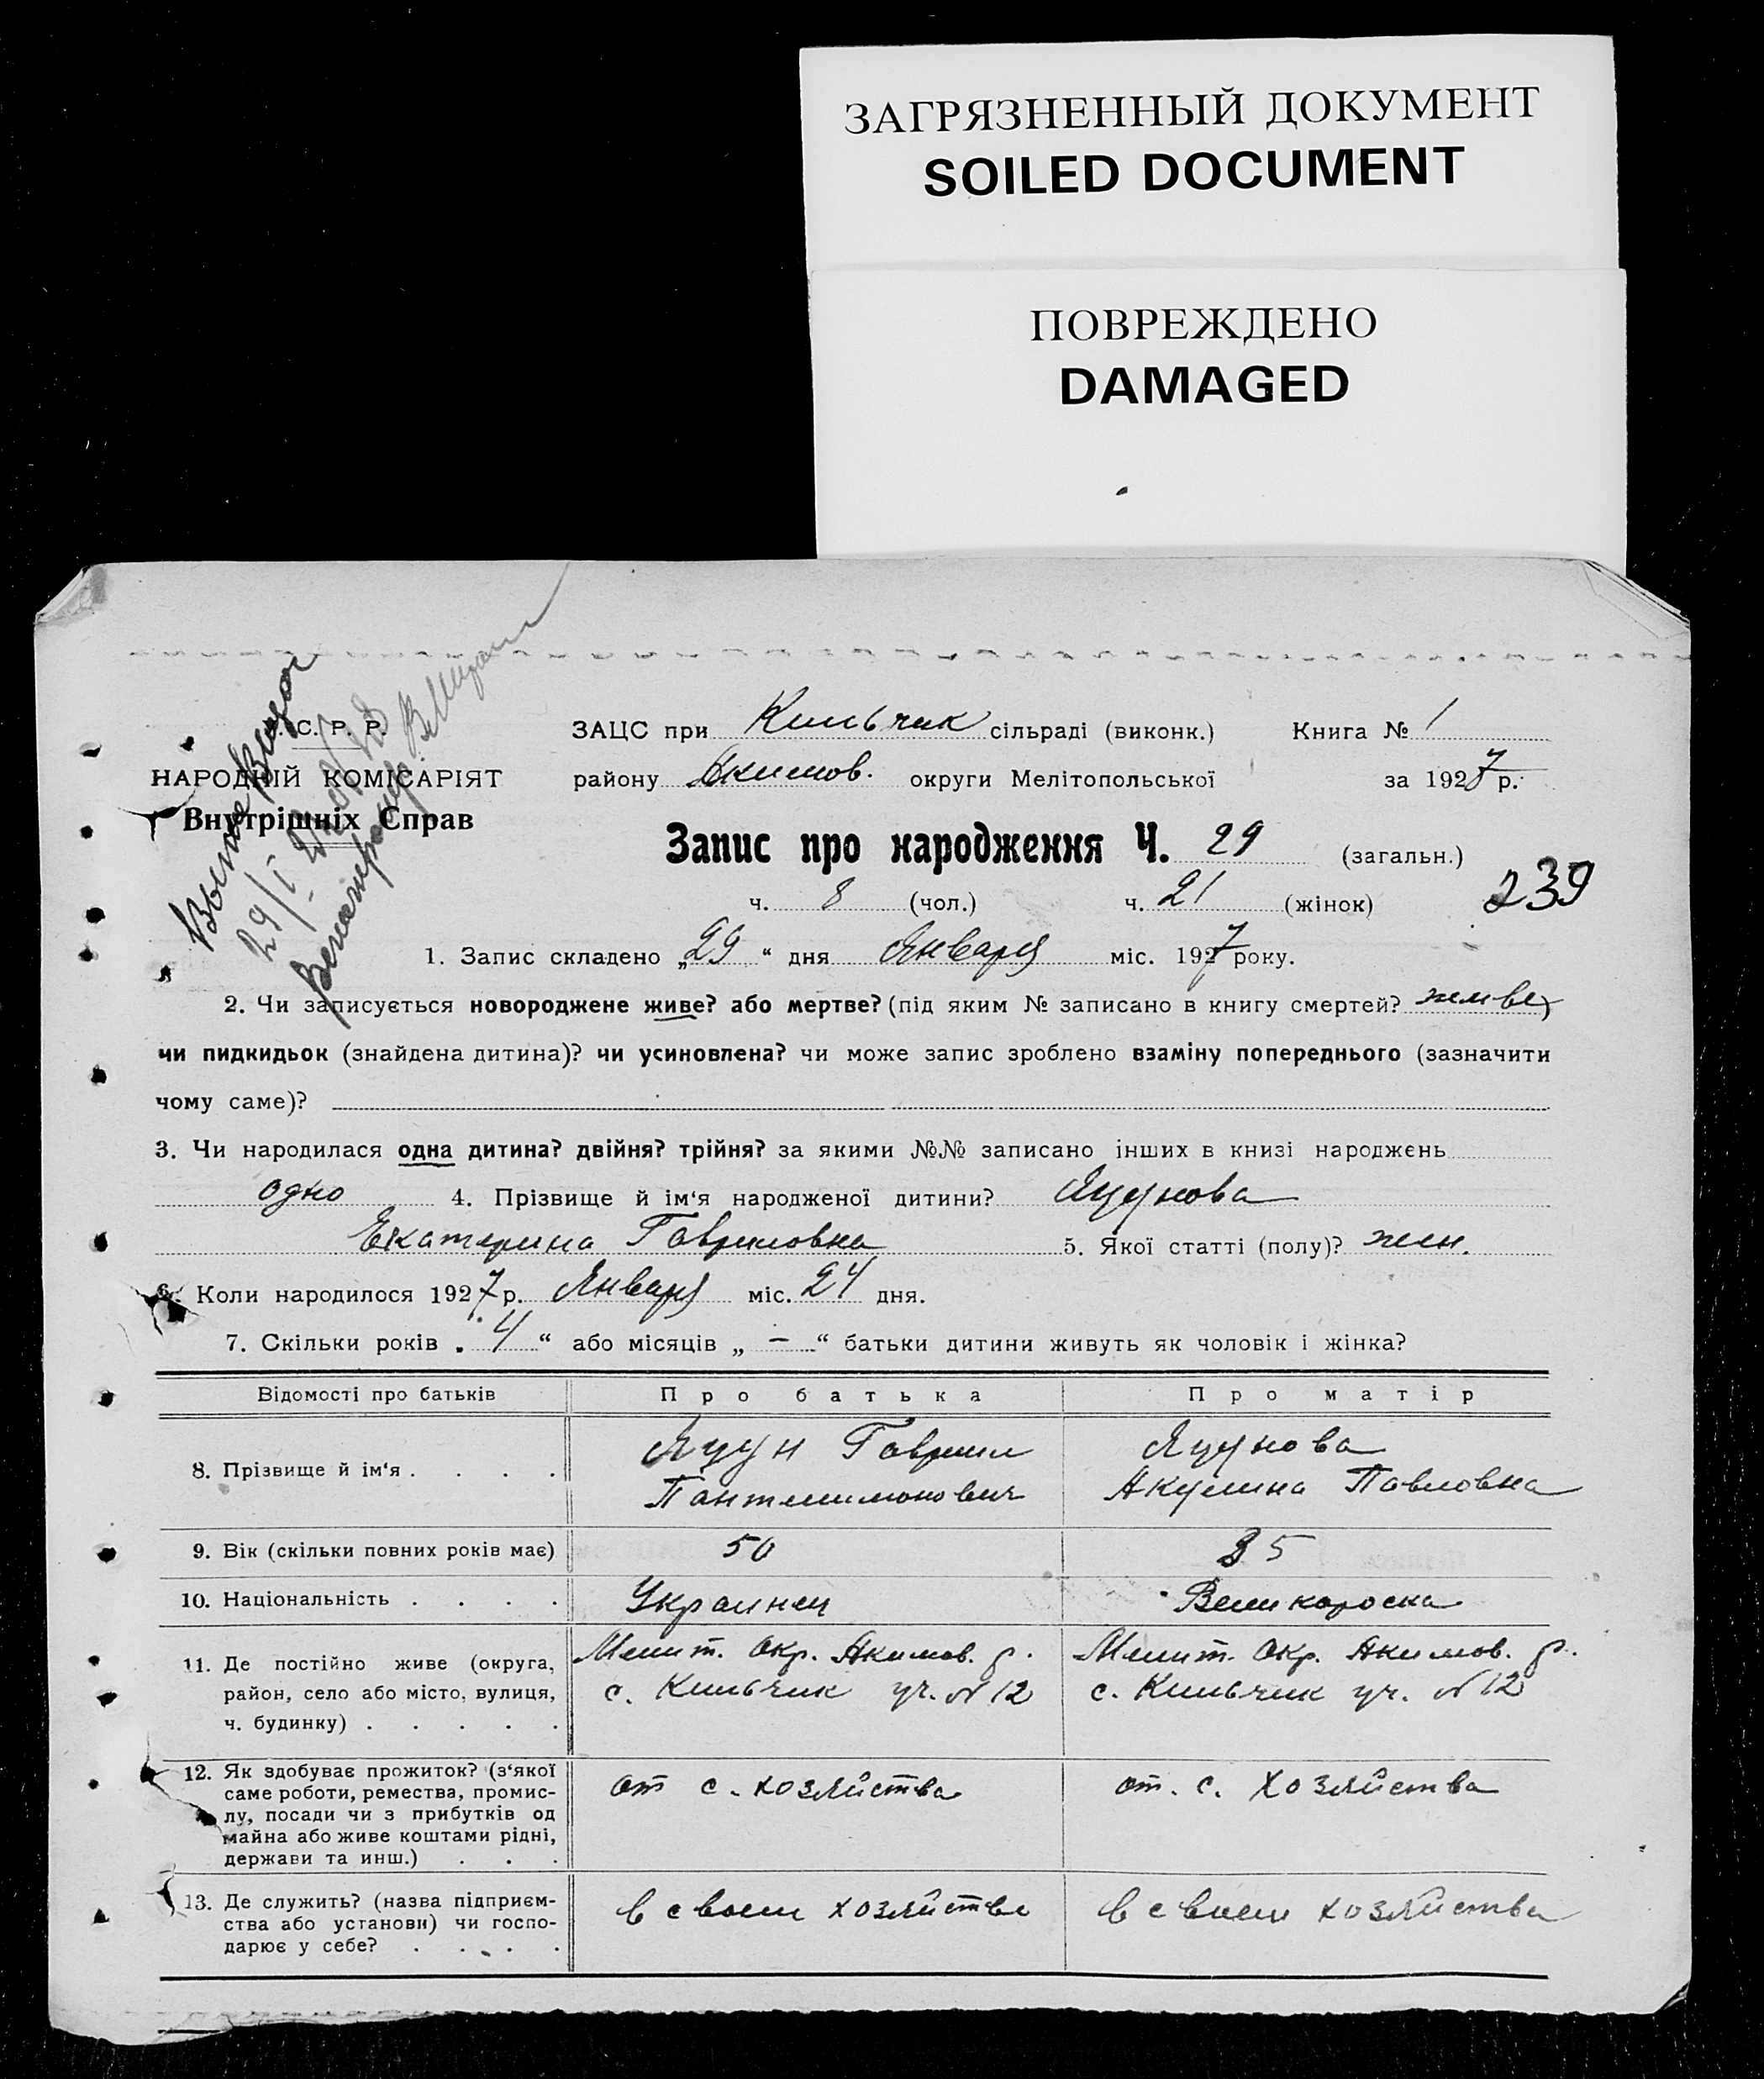 ЗАГРЯЗНЕННЫЙ ДОКУМЕНТ
SOILED DOCUMENT
ПОВРЕЖДЕНО
DAMAGED
С. Р. Р.
НАРОДНІЙ КОМІСАРІЯТ
Внутрішніх Справ
29/I
ЗАЦС при Кильчик сільраді (виконк.) Книга № 1
району Акимов. округи Мелітопольської за 1927 р.
Запис про народження Ч. 29 (загальн.)
ч. 8 (чол.) ч. 21 (жінок) 239
1. Запис складено „29“ дня Января міс. 1927 року.
2. Чи записується новороджене живе? або мертве? (під яким № записано в книгу смертей? живе)
чи пидкидьок (знайдена дитина)? чи усиновлена? чи може запис зроблено взаміну попереднього (зазначити
чому саме)?
3. Чи народилася одна дитина? двійня? трійня? за якими №№ записано інших в книзі народжень
одно 4. Прізвище й ім‘я народженої дитини? Яцунова
Екатерина Гавриловна 5. Якої статті (полу)? жен.
6. Коли народилося 1927 р. Января міс. 24 дня.
7. Скільки років „4“ або місяців „ — “ батьки дитини живуть як чоловік і жінка?
Відомості про батьків Про батька Про матір
8. Прізвище й ім‘я . . . . Яцун Гаврил Яцунова
Пантилимонович Акулина Павловна
9. Вік (скільки повних років має) 50 35
10. Національність . . . . Украинец Великороска
11. Де постійно живе (округа, Мелит. Окр. Акимов. р. Мелит. Окр. Акимов. р.
район, село або місто, вулиця, с. Кильчик уч. № 12 с. Кильчик уч. № 12
ч. будинку) . . . . .
12. Як здобуває прожиток? (з‘якої от с. хозяйства от. с. хозяйства
саме роботи, ремества, промис-
лу, посади чи з прибутків од
майна або живе коштами рідні,
держави та инш.) . . .
13. Де служить? (назва підприєм- в своем хозяйстве в своем хозяйства
ства або установи) чи госпо-
дарює у себе? . . . .